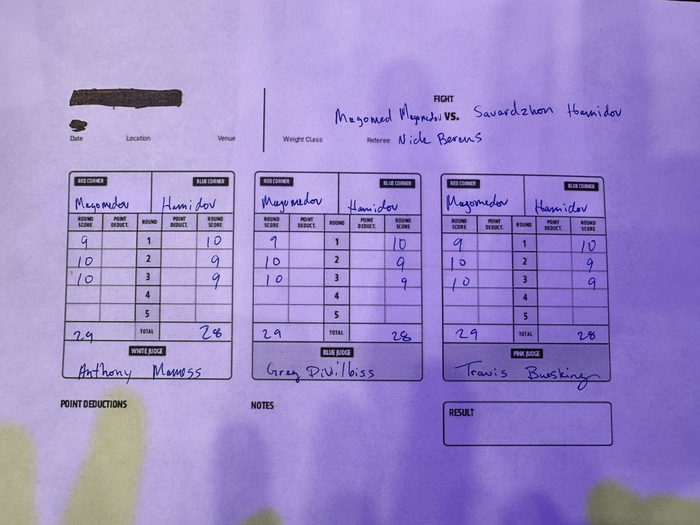 FIGHT
Magomed Magomedov VS. Savardzhon Hamidov
Date Location Venue Weight Class Referee Nick Berens
RED CORNER BLUE CORNER RED CORNER BLUE CORNER RED CORNER BLUE CORNER
Magomedov Hamidov Magomedov Hamidov Magomedov Hamidov
ROUND SCORE POINT DEDUCT. ROUND POINT DEDUCT. ROUND SCORE ROUND SCORE POINT DEDUCT. ROUND POINT DEDUCT. ROUND SCORE ROUND SCORE POINT DEDUCT. ROUND POINT DEDUCT. ROUND SCORE
9 1 10 9 1 10 9 1 10
10 2 9 10 2 9 10 2 9
10 3 9 10 3 9 10 3 9
4 4 4
5 5 5
29 TOTAL 28 29 TOTAL 28 29 TOTAL 28
WHITE JUDGE BLUE JUDGE PINK JUDGE
Anthony Maness Greg Divilbiss Travis
POINT DEDUCTIONS NOTES RESULT